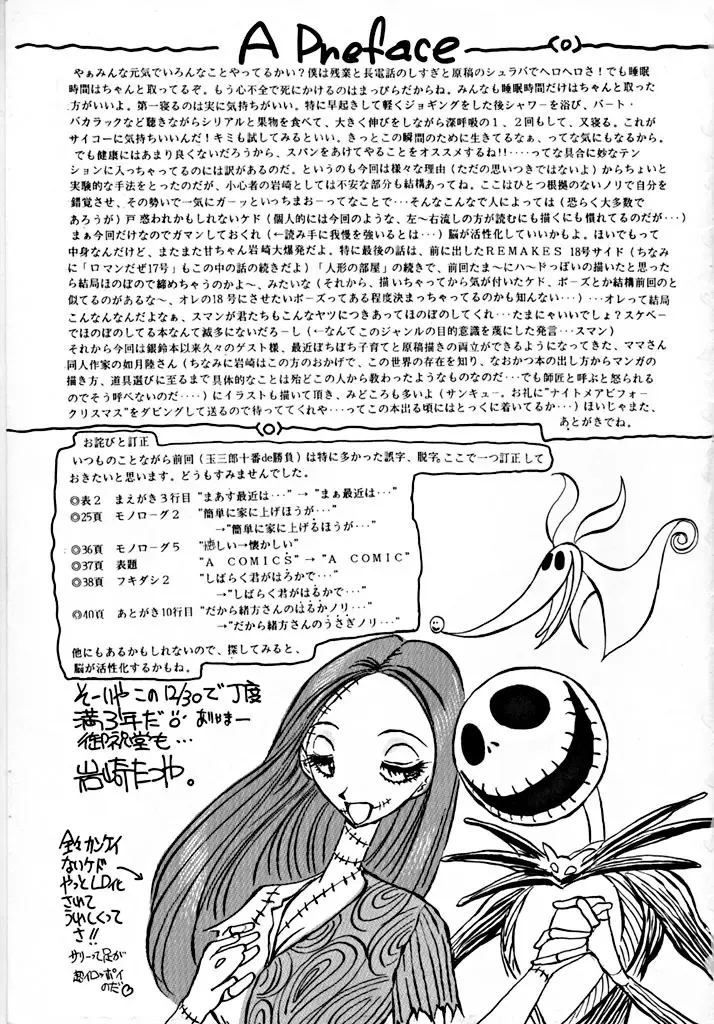 A Preface
(o)
やぁみんな元気でいろんなことやってるかい？僕は残業と長電話のしすぎと原稿のシュラバでヘロヘロさ！でも睡眠
時間はちゃんと取ってるぞ。もう心不全で死にかけるのはまっぴらだからね。みんなも睡眠時間だけはちゃんと取った
方がいいよ。第一寝るのは実に気持ちがいい。特に早起きして軽くジョギングをした後シャワーを浴び、バート・
バカラックなど聴きながらシリアルと果物を食べて、大きく伸びをしながら深呼吸の１、２回もして、又寝る。これが
サイコーに気持ちいいんだ！キミも試してみるといい。きっとこの瞬間のために生きてるなぁ、ってな気にもなるから。
でも健康にはあまり良くないだろうから、スパンをあけてやることをオススメするね!!‥‥ってな具合に妙なテン
ションに入っちゃってるのには訳があるのだ。というのも今回は様々な理由（ただの思いつきではないよ）からちょいと
実験的な手法をとったのだが、小心者の岩崎としては不安な部分も結構あってね。ここはひとつ根拠のないノリで自分を
錯覚させ、その勢いで一気にガーッといっちまおーってなことで‥‥そんなこんなで人によっては（恐らく大多数で
あろうが）戸惑われるかもしれないケド（個人的には今回のような、左〜右流しの方が読むにも描くにも慣れてるのだが‥‥）
まぁ今回だけなのでガマンしておくれ（←読み手に我慢を強いるとは‥‥）脳が活性化していいかもよ。ほいでもって
中身なんだけど、またまた甘ちゃん岩崎大爆発だよ。特に最後の話は、前に出したＲＥＭＡＫＥＳ 18号サイド（ちなみ
に「ロマンだぜ17号」もこの中の話の続きだよ）「人形の部屋」の続きで、前回たま〜にハ〜ドっぽいの描いたと思った
ら結局ほのぼので締めちゃうのかよ〜、みたいな（それから、描いちゃってから気が付いたケド、ポーズとか結構前回のと
似てるのがあるな〜、オレの18号にさせたいポーズってある程度決まっちゃってるのかも知んない‥‥）‥‥オレって結局
こんなんなんだよなぁ、スマンが君たちもこんなヤツにつきあってほのぼのしてくれ‥‥たまにゃいいでしょ？スケベー
でほのぼのしてる本なんて滅多にないだろーし（←なんてこのジャンルの目的意識を蔑にした発言‥‥スマン）
それから今回は銀鈴本以来久々のゲスト様、最近ぼちぼち子育てと原稿描きの両立ができるようになってきた、ママさん
同人作家の如月陸さん（ちなみに岩崎はこの方のおかげで、この世界の存在を知り、なおかつ本の出し方からマンガの
描き方、道具選びに至るまで具体的なことは殆どこの人から教わったようなものなのだ‥‥でも師匠と呼ぶと怒られる
のでそう呼べないのだ‥‥）にイラストも描いて頂き、みどころも多いよ（サンキュー。お礼に"ナイトメアビフォー
クリスマス"をダビングして送るので待っててくれや‥‥ってこの本出る頃にはとっくに着いてるか‥‥）ほいじゃまた、
あとがきでね。
(o)
お詫びと訂正
いつものことながら前回（玉三郎十番de勝負）は特に多かった誤字、脱字、ここで一つ訂正して
おきたいと思います。どうもすみませんでした。
◎表２ まえがき３行目 "まあす最近は‥‥" → "まぁ最近は‥‥"
◎25頁 モノローグ２ "簡単に家に上げほうが‥‥"
→"簡単に家に上げるほうが‥‥"
◎36頁 モノローグ５ "悔しい→懐かしい"
◎37頁 表題 "Ａ ＣＯＭＩＣＳ" → "Ａ ＣＯＭＩＣ"
◎38頁 フキダシ２ "しばらく君がはろかで‥‥"
→"しばらく君がはるかで‥‥"
◎40頁 あとがき10行目 "だから緒方さんのはるかノリ‥‥"
→"だから緒方さんのうさぎノリ‥‥"
他にもあるかもしれないので、探してみると、
脳が活性化するかもね。
そーいや この12/30で丁度
満3年だ ありはまー
御祝堂も…
岩崎たつや。
全々カンケイ
ないケド
やっとLD化
されて
うれしくって
さ!!
サリーって足が
超イロッポイ
のだ♡